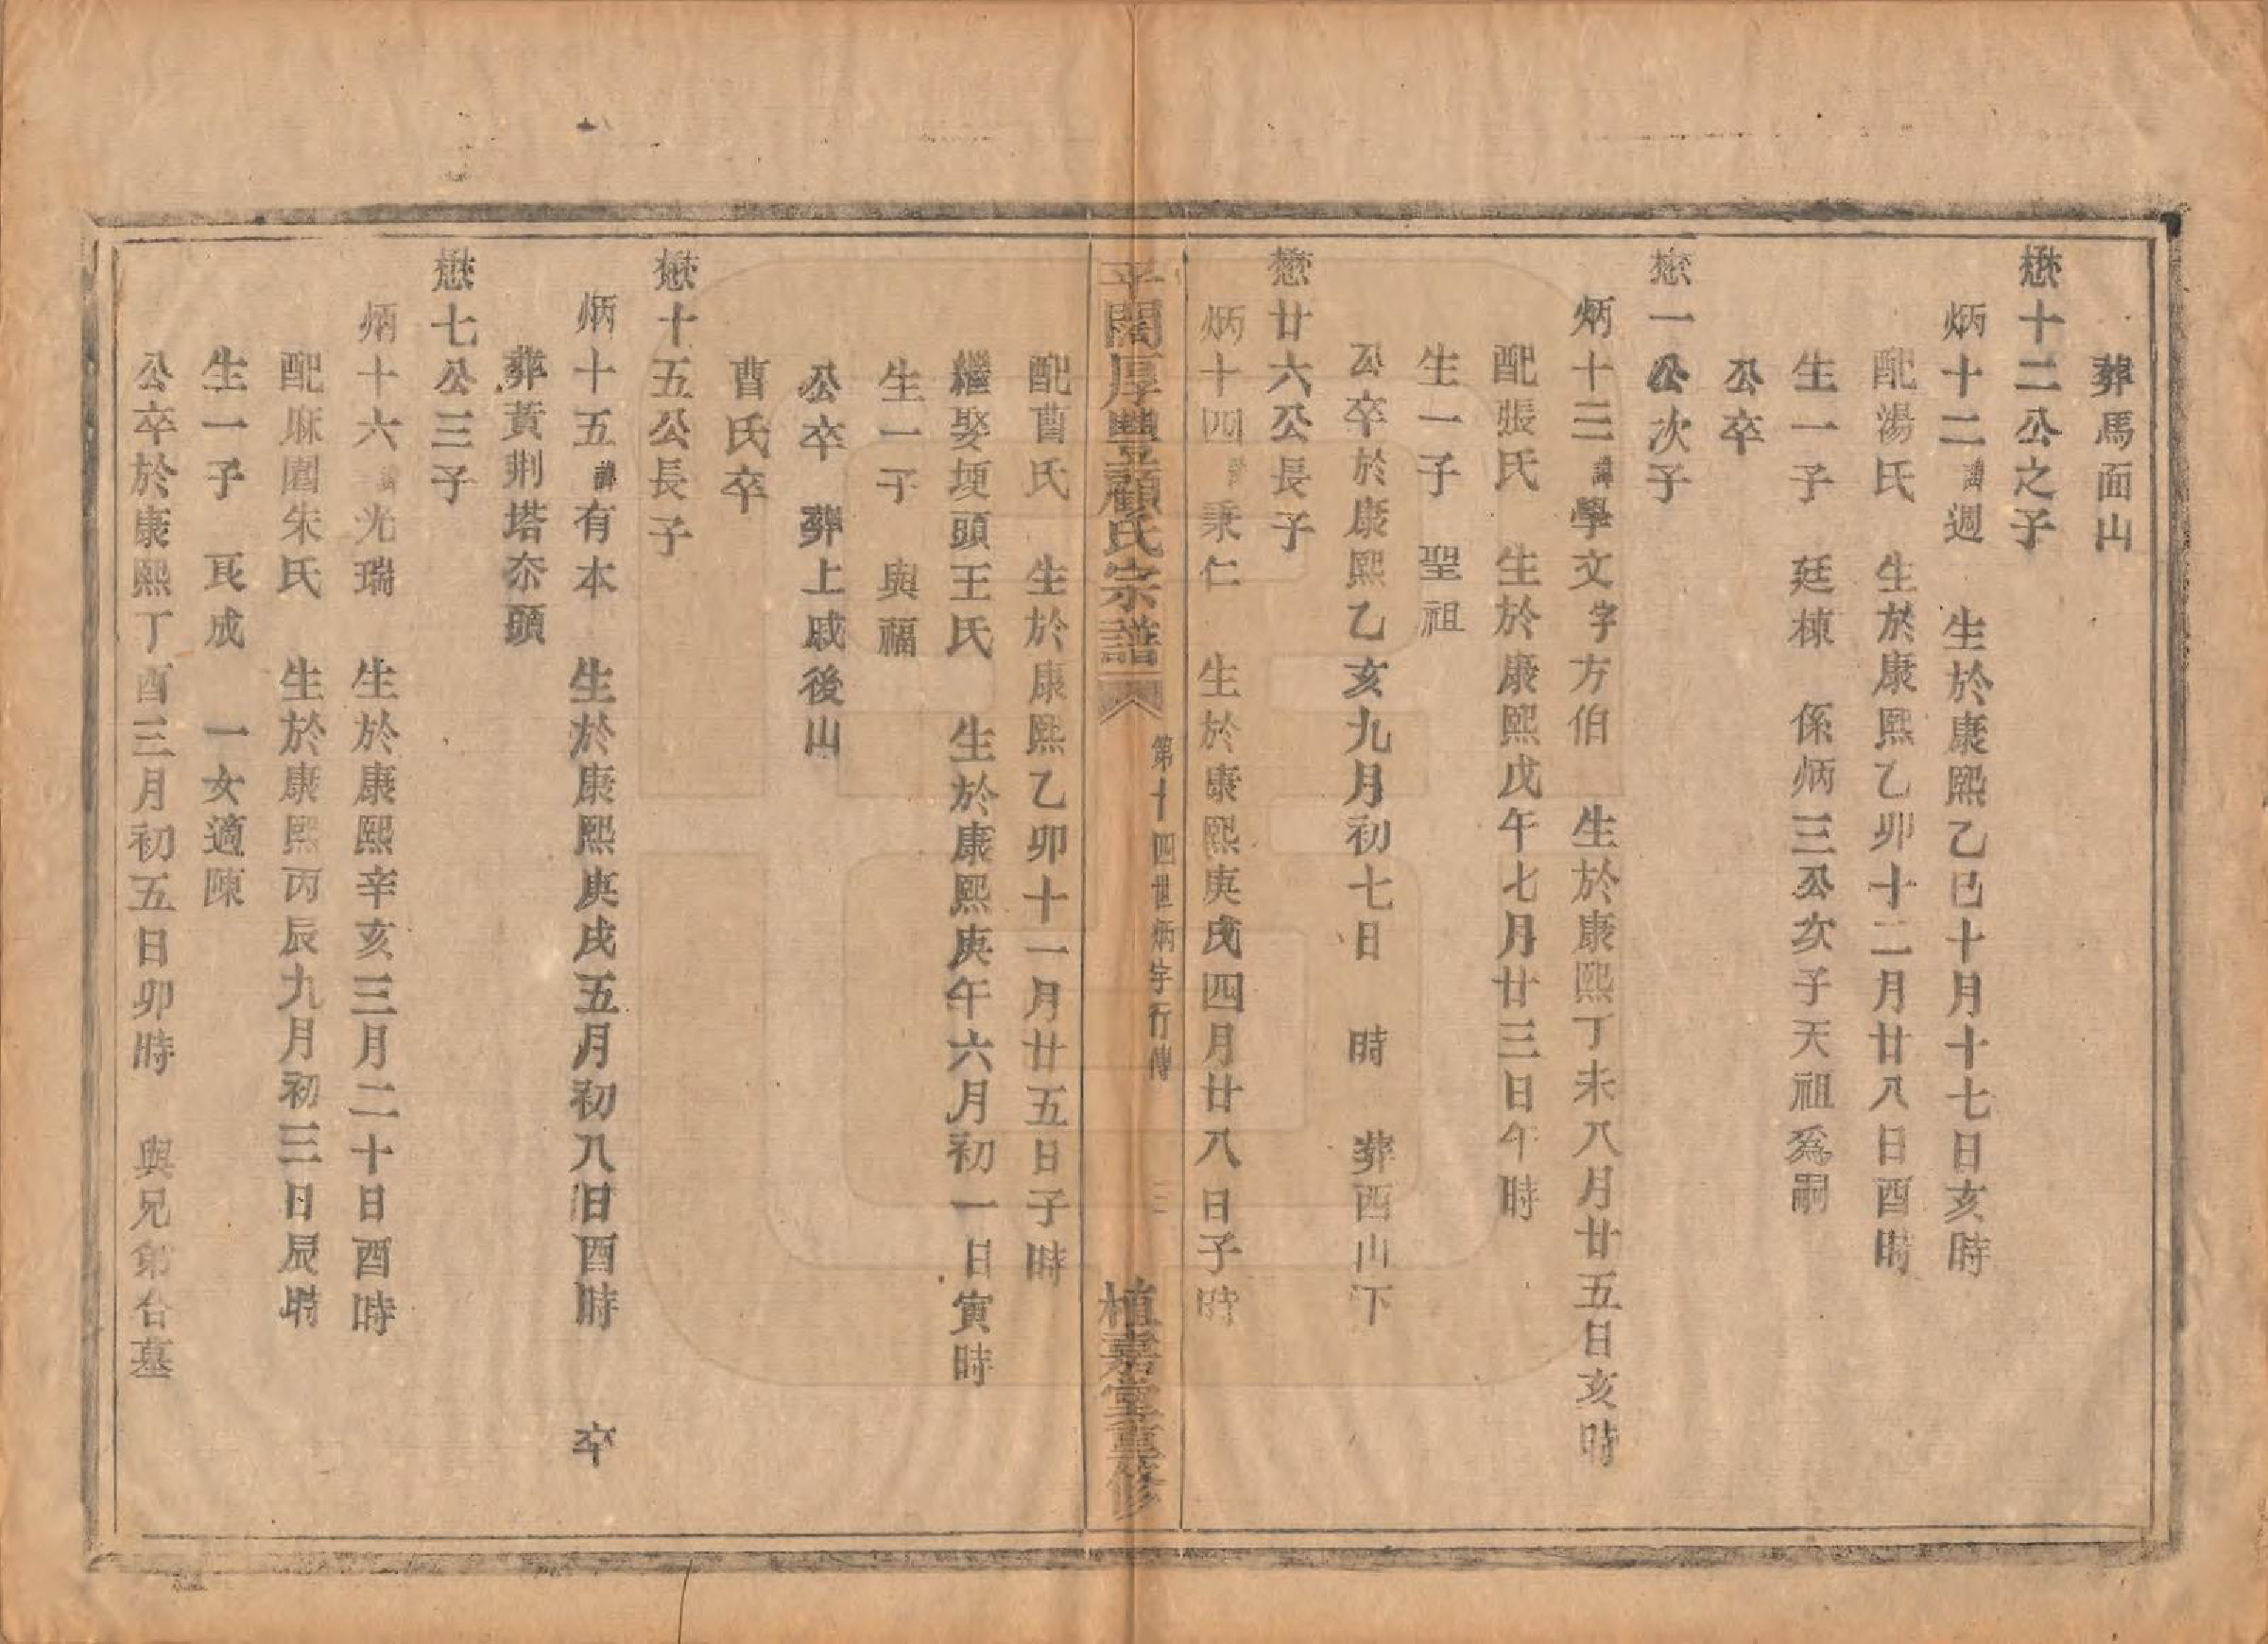 葬馬面山
懋十二公之子
炳十二諱週　生於康熙乙巳十月十七日亥時
配湯氏　生於康熙乙卯十二月廿八日酉時
生一子　廷棟　係炳三公次子天祖爲嗣
公卒
懋一公次子
炳十三諱學文字方伯　生於康熙丁未八月廿五日亥時
配張氏　生於康熙戊午七月廿三日午時
生一子　聖祖
公卒於康熙乙亥九月初七日　時　葬西山下
懋廿六公長子
炳十四諱秉仁　生於康熙庚戌四月廿八日子時
平闊厚豐顧氏宗譜　第十四世炳字行傳　三　植嘉堂重修
配曹氏　生於康熙乙卯十一月廿五日子時
繼娶埂頭王氏　生於康熙庚午六月初一日寅時
生一子　與福
公卒　葬上戚後山
曹氏卒
懋十五公長子
炳十五諱有本　生於康熙庚戌五月初八日酉時　卒
葬黃荆塔夰頭
懋七公三子
炳十六諱光瑞　生於康熙辛亥三月二十日酉時
配麻園朱氏　生於康熙丙辰九月初三日辰時
生一子　艮成　一女適陳
公卒於康熙丁酉三月初五日卯時　與兄弟合墓